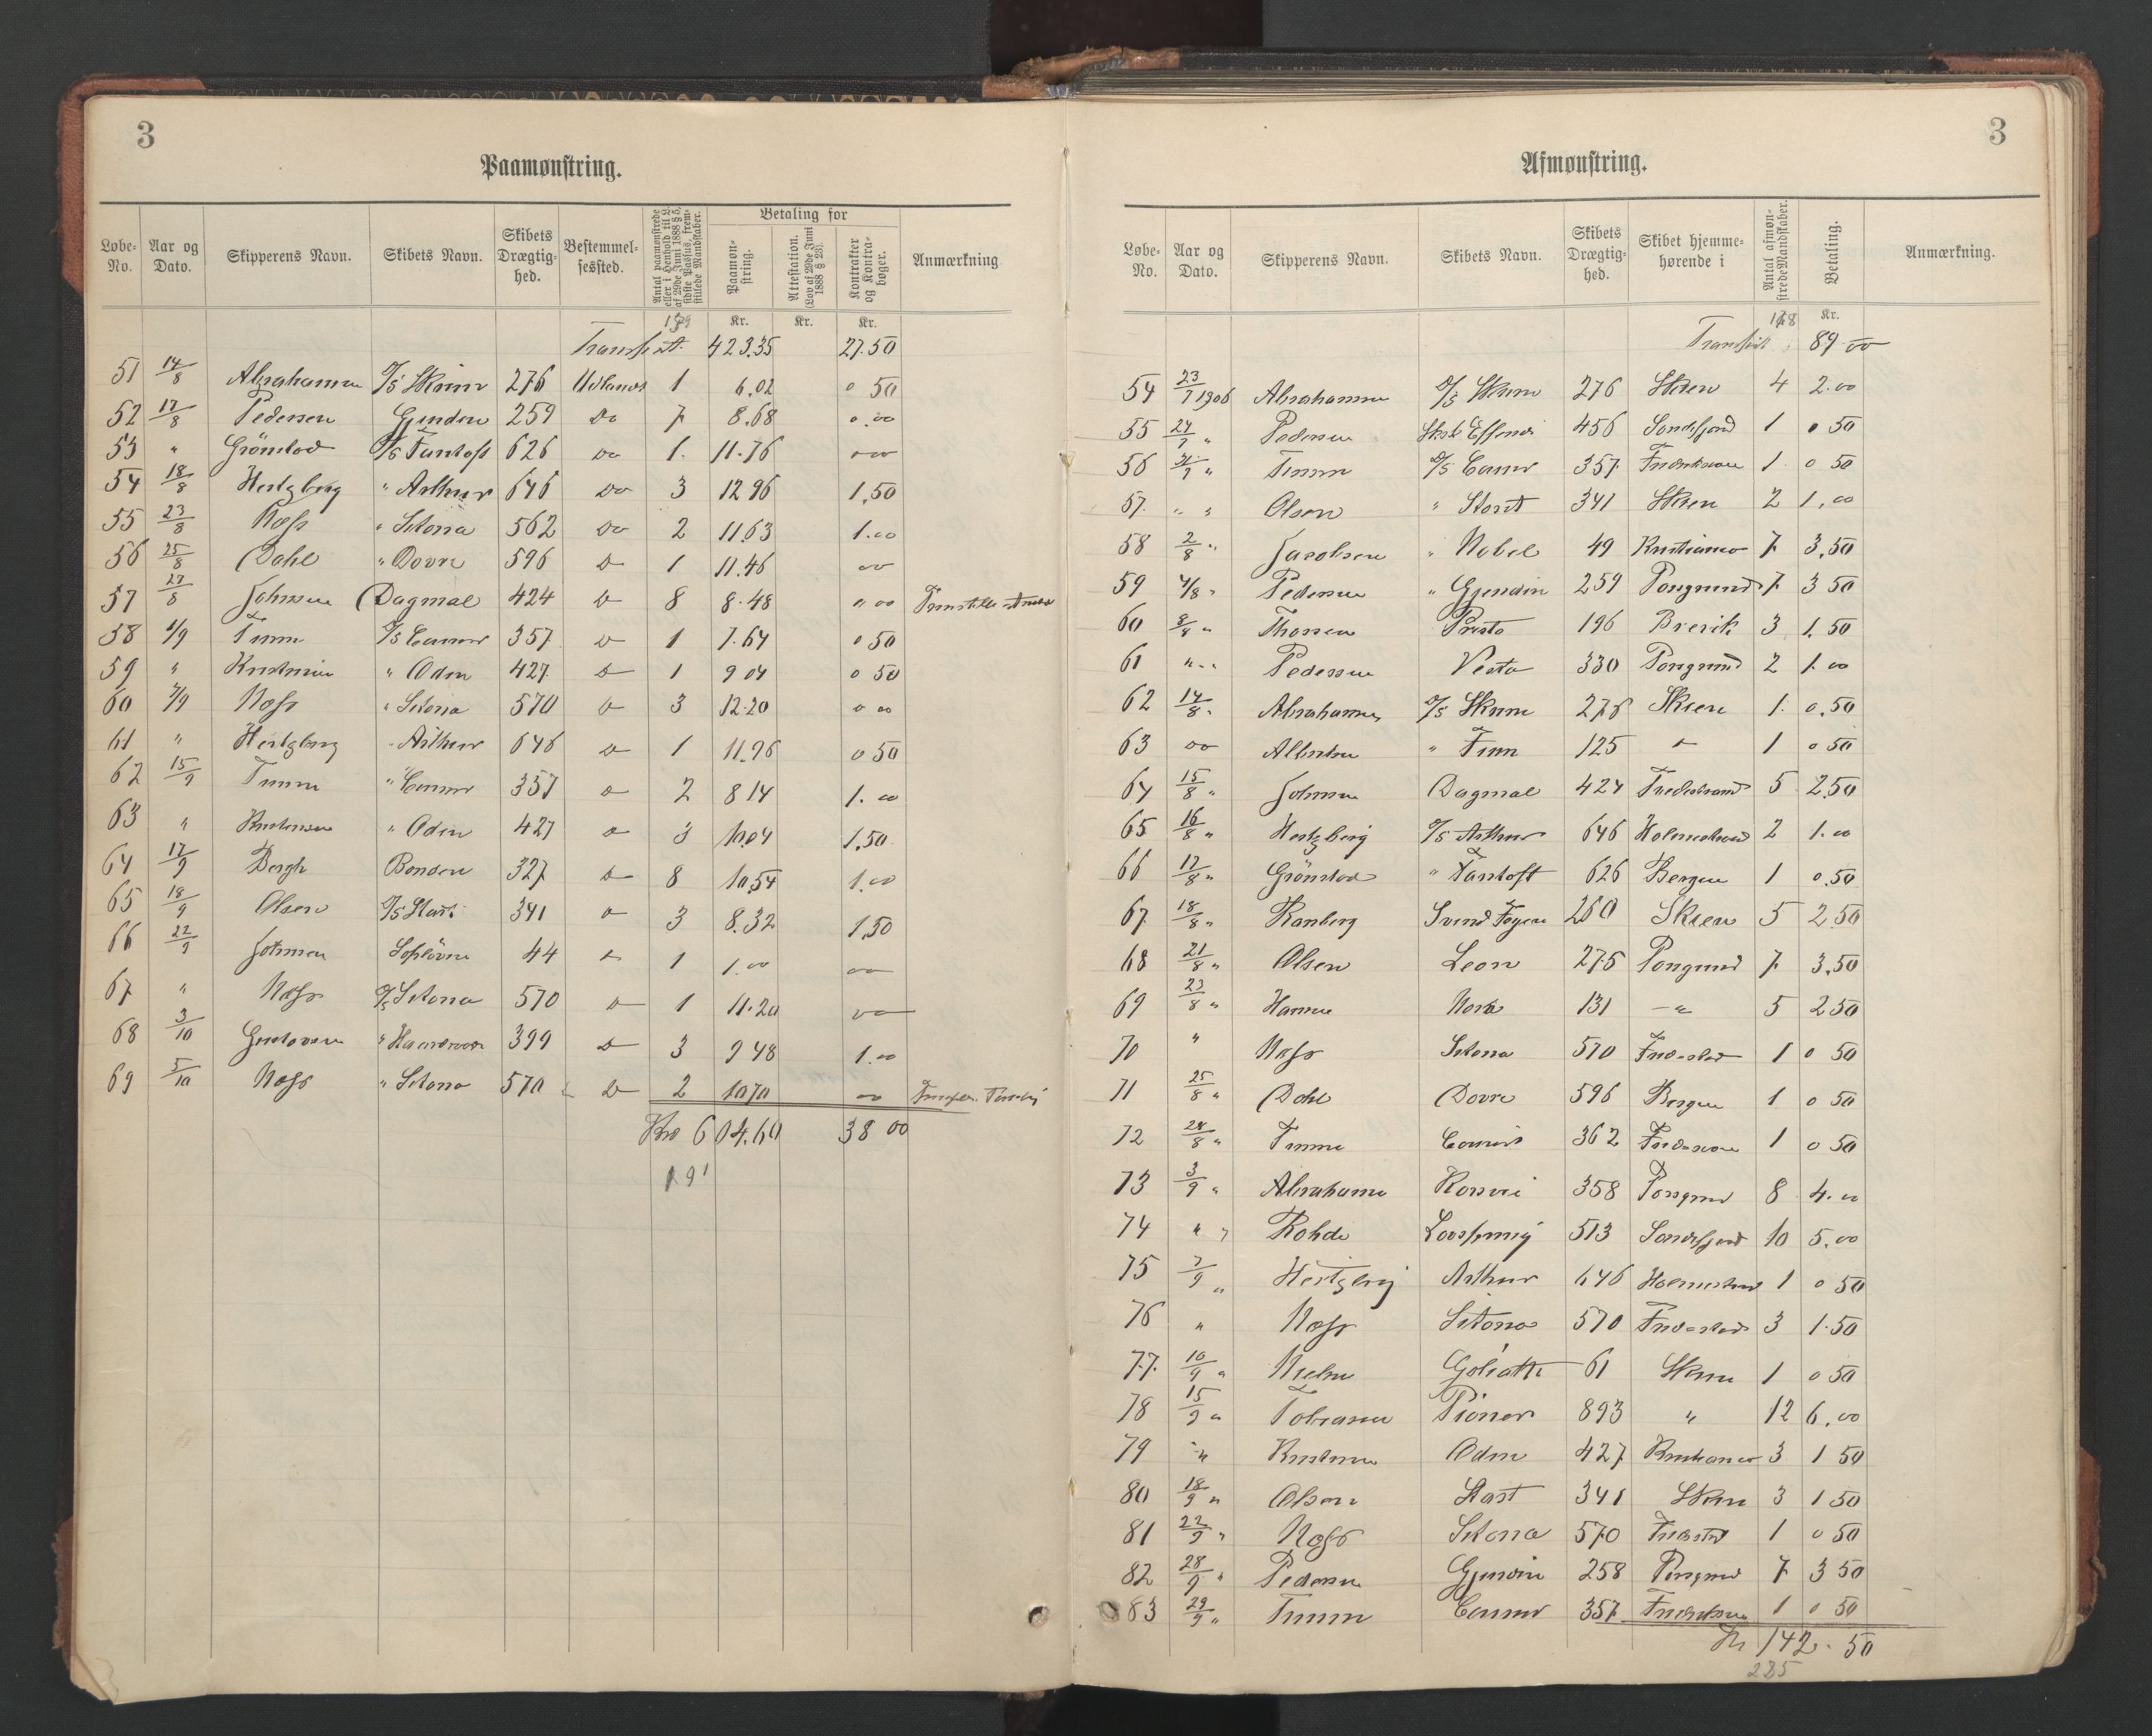 3
Paamønstring.
Løbe-No. Aar og Dato. Skipperens Navn. Skibets Navn. Skibets Drægtig-hed. Bestemmel-sessted. Antal paamønstrede eller i Henhold til L. af 29de Juni 1888 § 5, sidste Passus, frem-stillede Mandskaber. Betaling for Paamøn-string. Attestation. (Lov af 29de Juni 1888 § 23). Kontrakter og Kontra-bøger. Anmærkning
Kr. Kr. Kr.
Transport 423.35 27.50
51 14/8 Abrahamsen D/S Skien 276 Udlandet 1 6.02 0 50
52 17/8 Pedersen Gjendin 259 Do 7 8.68 0.00
53 " Grönstad D/S Fantoft 626 Do 1. 11.76
54 18/8 Hertzberg " Arthur 646 Do 3 12 96 1.50
55 23/8 Næss " Sitona 562 Do 2 11.63 1.00
56 25/8 Dahl " Dovre 596 D 1 11.46
57 27/8 Johnsen Dagmal 424 D 8 8.48 " 00
58 1/9 Timm D/S Comer 357 D 1 7.64 0 50
59 " Kristensen " Odin 427 D 1 9 04 0 50
60 7/9 Næss " Sitona 570 D 3 12.20 0 00
61 " Hertzberg " Arthur 646 D 1 11.96 0 50
62 15/9 Timm " Comer 357 D 2 8 14 1.00
63 " Kristensen " Odin 427 D 3 10.04 1.50
64 17/9 Bergh Bonden 327 D 8 10.54 1.00
65 18/9 Olsen D/S Start 341 D 3 8.32 1.50
66 22/9 Johnsen 44 1 1.00
67 " Næss D/S Sitona 570 D 1 11.20
68 3/10 Gustavsen 399 D 3 9 48 1.00
69 5/10 Næss " Sitona 570 D 2 10 70
Kr 604.60 38 00
191
3
Afmønstring.
Løbe-No. Aar og Dato. Skipperens Navn. Skibets Navn. Skibets Drægtig-hed. Skibet hjemme-hørende i Antal afmøn-strede Mandskaber. Betaling. Anmærkning.
178 Kr.
Transport 89.00
54 23/7 1906 Abrahamsen D/S Skien 276 Skien 4 2.00
55 27/7 " Pedersen Effendi 456 Sandefjord 1 0 50
56 31/7 " Timm D/S Comer 357 1 0 50
57. " " Olsen " Start 341 Skien 2 1.00
58 2/8 " Jacobsen " Nobel 49 Kristiania 7 3.50
59 4/8 " Pedersen " Gjendin 259 Porsgrund 7 3 50
60 8/8 " Thorsen Presto 196 Brevik 3 1.50
61 " " Pedersen Vesta 330 Porsgrund 2 1.00
62 14/8 " Abrahamsen D/S Skien 276 Skien 1. 0.50
63 Do Albertsen " Finn 125 1 0 50
64 15/8 " Johnsen Dagmal 424 5 2.50
65 16/8 " Hertzberg D/S Arthur 646 Holmestrand 2 1.00
66 17/8 " Grönstad " Fantoft 626 Bergen 1 0.50
67 18/8 " Ranberg Svend Foyn 260 Skien 5 2.50
68 21/8 " Olsen Leon 275 Porsgrund 7 3.50
69 23/8 " Hansen Nora 131 — " 5 2 50
70 " Næss Sitona 570 Fredrikstad 1 0 50
71 25/8 " Dahl Dovre 596 Bergen 1 0 50
72 28/8 " Timm Comer 362 1 0 50
73 3/9 " Abrahamsen 358 Porsgrund 8 4.00
74 " " Rohde 513 Sandefjord 10 5.00
75 7/9 " Hertzberg Arthur 646 Holmestrand 1 0 50
76 " Næss Sitona 570 Fredrikstad 3 1.50
77. 10/9 " Nielsen Goliath 61 Skien 1 0 50
78 15/9 " Tobiasen Pioner 893 " 12 6.00
79 " Kristensen Odin 427 Kristiania 3 1 50
80 18/9 " Olsen Start 341 Skien 3 1 50
81 22/9 " Næss Sitona 570 Fredrikstad 1 0 50
82 28/9 " Pedersen Gjendin 258 Porsgrund 7 3 50
83 29/9 " Timm Comer 357 1 0 50
Kr 142.50
285